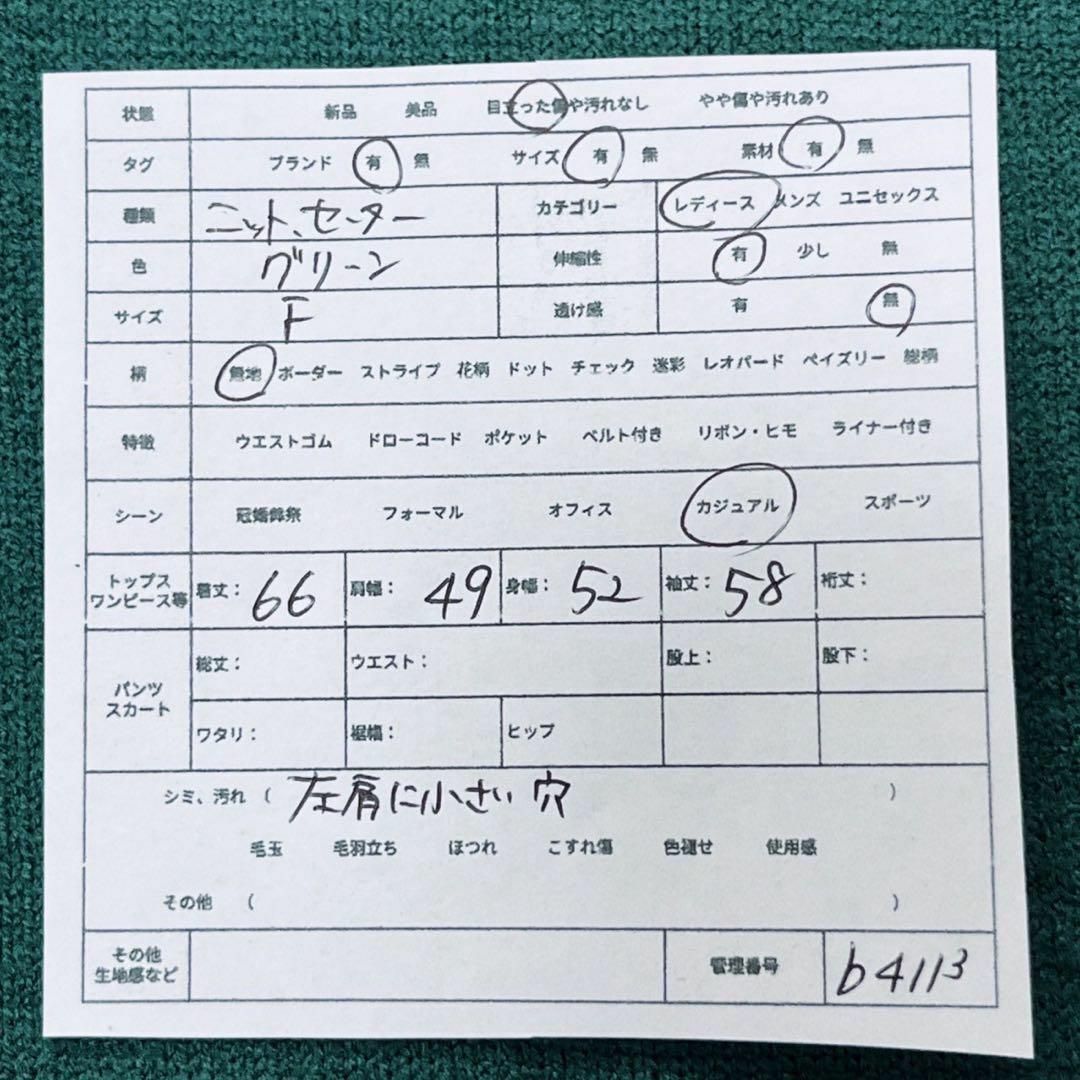 状態 新品 美品 目立った傷や汚れなし やや傷や汚れあり
タグ ブランド 有 無 サイズ 有 無 素材 有 無
種類 ニット、セーター カテゴリー レディース メンズ ユニセックス
色 グリーン 伸縮性 有 少し 無
サイズ F 透け感 有 無
柄 無地 ボーダー ストライプ 花柄 ドット チェック 迷彩 レオパード ペイズリー 総柄
特徴 ウエストゴム ドローコード ポケット ベルト付き リボン・ヒモ ライナー付き
シーン 冠婚葬祭 フォーマル オフィス カジュアル スポーツ
トップス
ワンピース等 着丈: 66 肩幅: 49 身幅: 52 袖丈: 58 裄丈:
パンツ
スカート 総丈: ウエスト: 股上: 股下:
ワタリ: 裾幅: ヒップ
シミ、汚れ ( 左肩に小さい穴 )
毛玉 毛羽立ち ほつれ こすれ傷 色褪せ 使用感
その他 ( )
その他
生地感など 管理番号 b4113